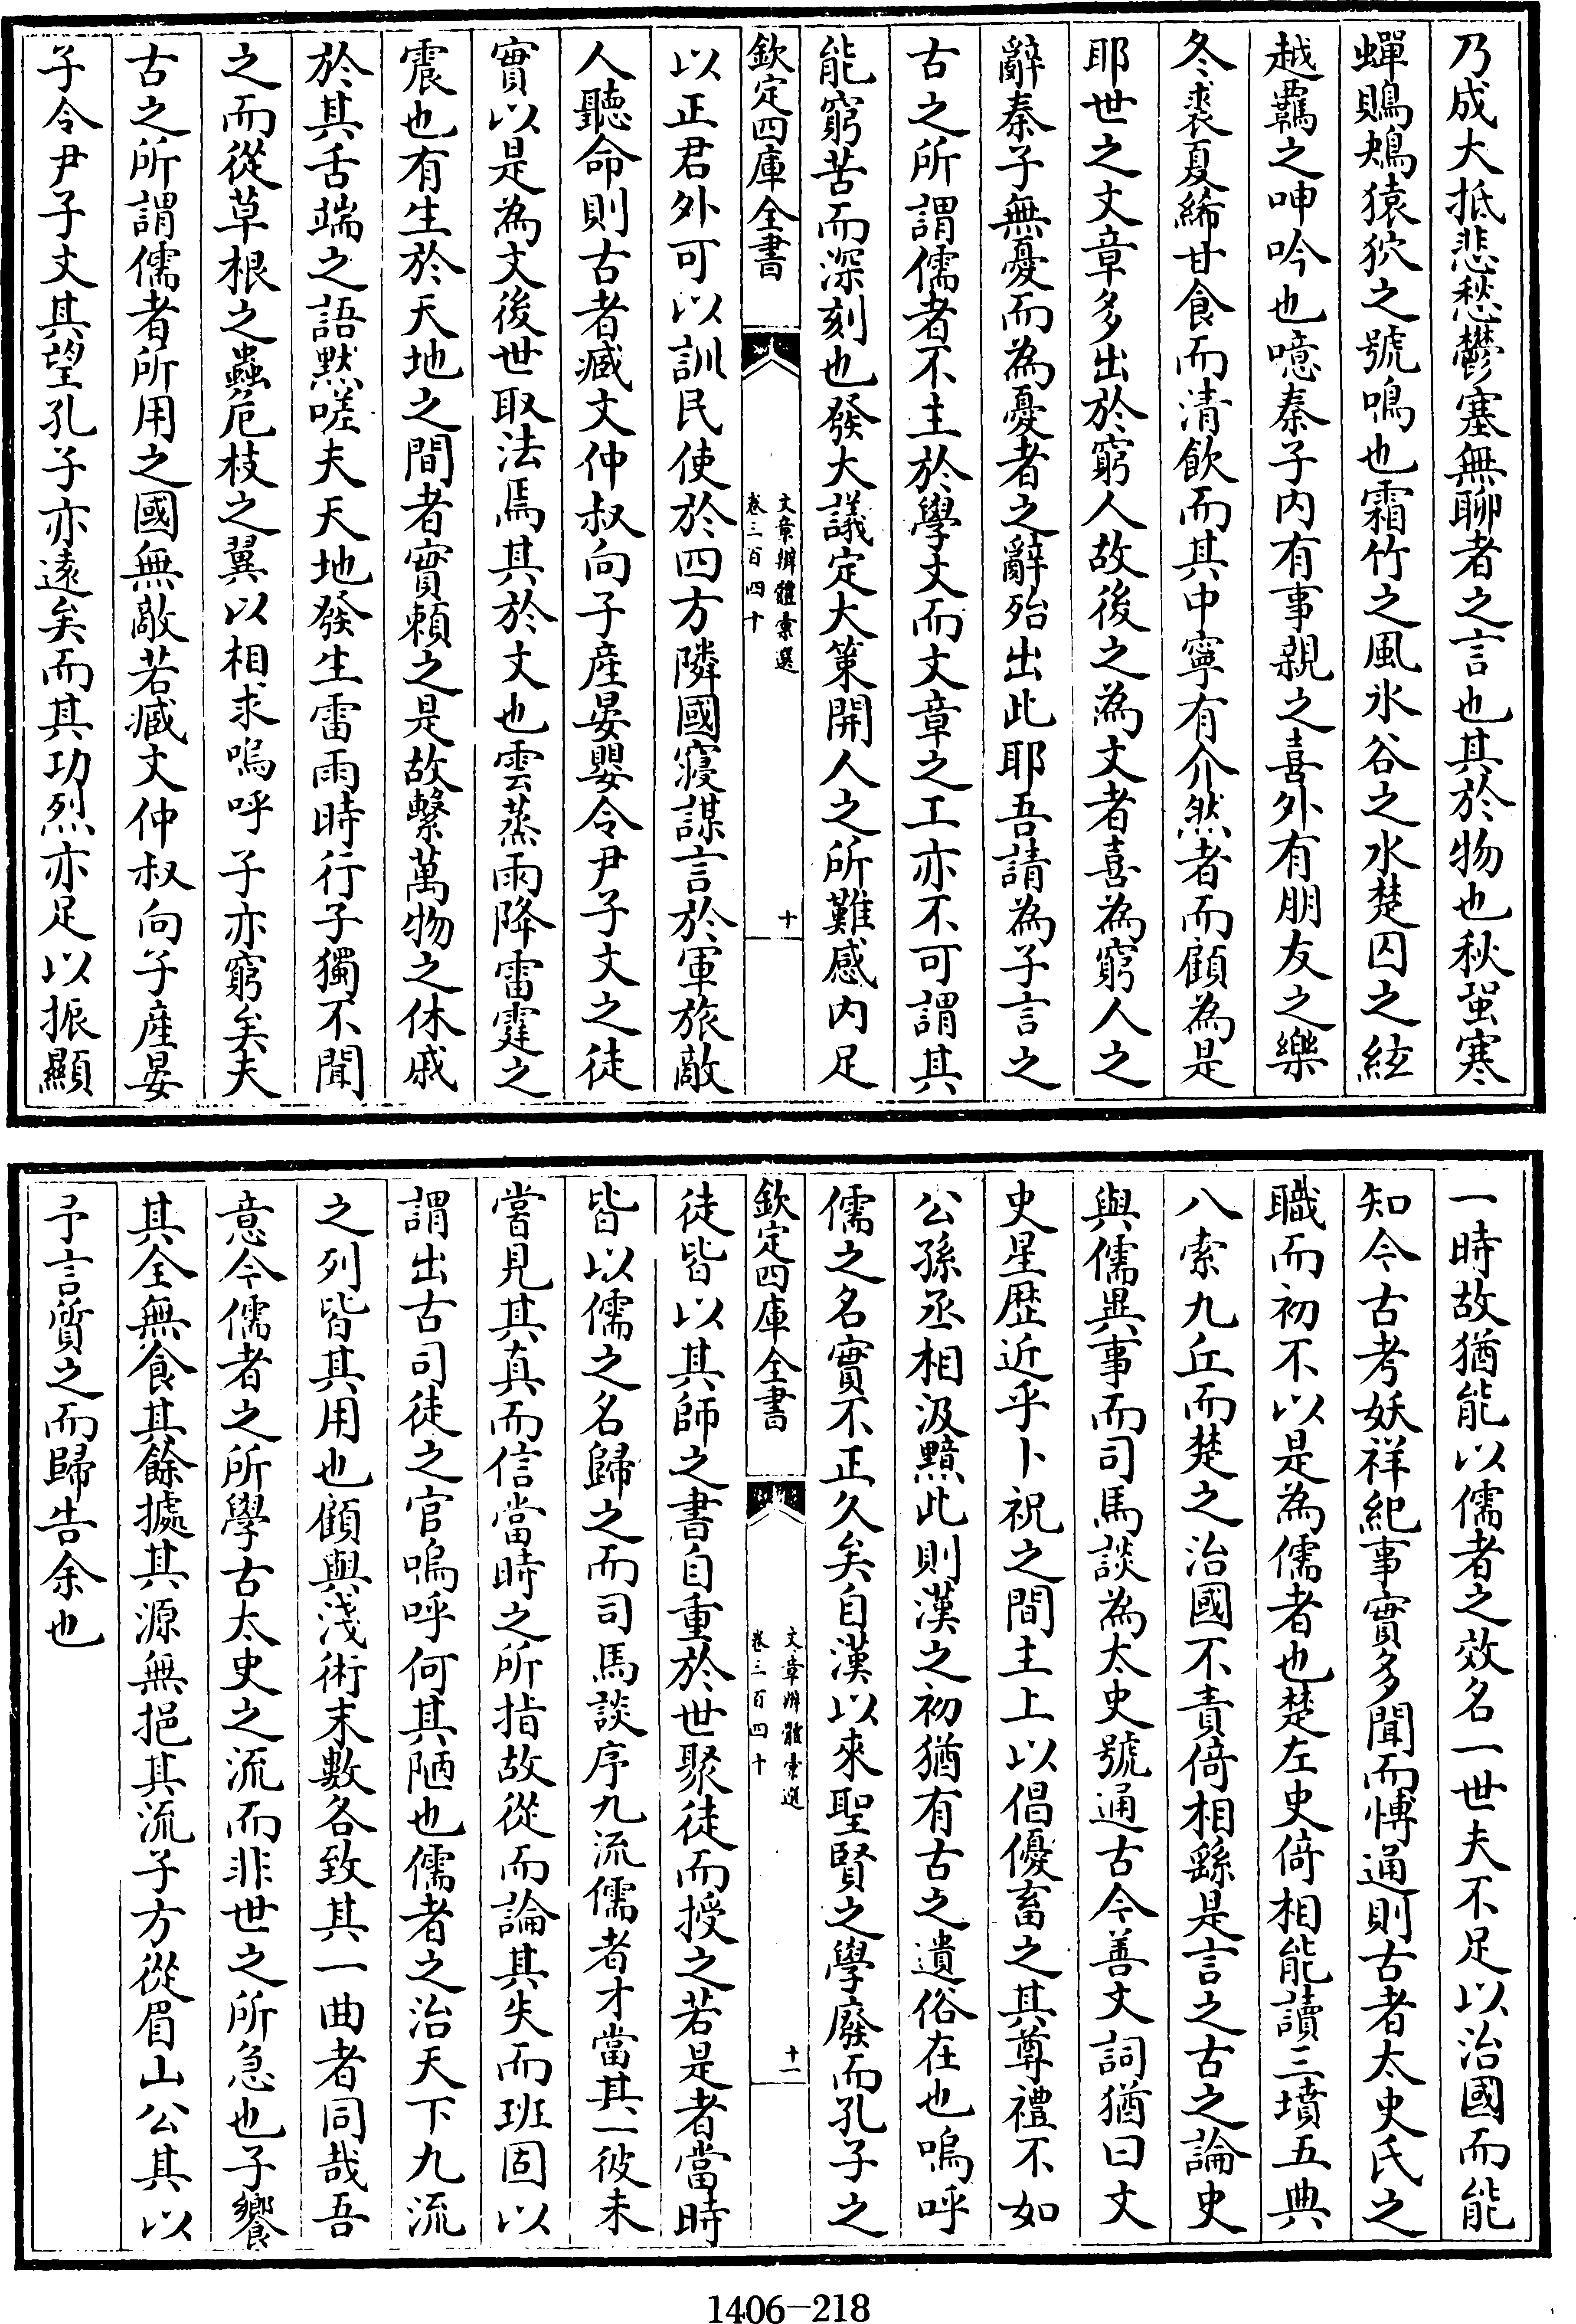 乃成大抵悲愁鬱塞無聊者之言也其於物也秋蛩寒
蟬鵙鴂猿狖之號鳴也霜竹之風氷谷之水楚囚之絃
越羈之呻吟也噫秦子内有事親之喜外有朋友之樂
冬裘夏絺甘食而清飲而其中寧有介然者而顧為是
耶世之文章多出於窮人故後之為文者喜為窮人之
辭秦子無憂而為憂者之辭殆出此耶吾請為子言之
古之所謂儒者不主於學文而文章之工亦不可謂其
能窮苦而深刻也發大議定大策開人之所難感内足
欽定四庫全書
文章辨體彙選
卷三百四十
十
以正君外可以訓民使於四方隣國寢謀言於軍旅敵
人聽命則古者臧文仲叔向子産晏嬰令尹子文之徒
實以是為文後世取法焉其於文也雲蒸雨降雷霆之
震也有生於天地之間者實賴之是故繫萬物之休戚
於其舌端之語黙嗟夫天地發生雷雨時行子獨不聞
之而從草根之蟲危枝之翼以相求嗚呼子亦窮矣夫
古之所謂儒者所用之國無敵若臧文仲叔向子産晏
子令尹子文其望孔子亦遠矣而其功烈亦足以振顯
一時故猶能以儒者之效名一世夫不足以治國而能
知今古考妖祥紀事實多聞而愽通則古者太史氏之
職而初不以是為儒者也楚左史倚相能讀三墳五典
八索九丘而楚之治國不責倚相繇是言之古之論史
與儒異事而司馬談為太史號通古今善文詞猶曰文
史星歴近乎卜祝之間主上以倡優畜之其尊禮不如
公孫丞相汲黯此則漢之初猶有古之遺俗在也嗚呼
儒之名實不正久矣自漢以來聖賢之學廢而孔子之
欽定四庫全書
文章辨體彙選
卷三百四十
十一
徒皆以其師之書自重於世聚徒而授之若是者當時
皆以儒之名歸之而司馬談序九流儒者才當其一彼未
嘗見其真而信當時之所指故從而論其失而班固以
謂出古司徒之官嗚呼何其陋也儒者之治天下九流
之列皆其用也顧與淺術末數各致其一曲者同哉吾
意今儒者之所學古太史之流而非世之所急也子饗
其全無食其餘據其源無挹其流子方從眉山公其以
予言質之而歸告余也
1406-218